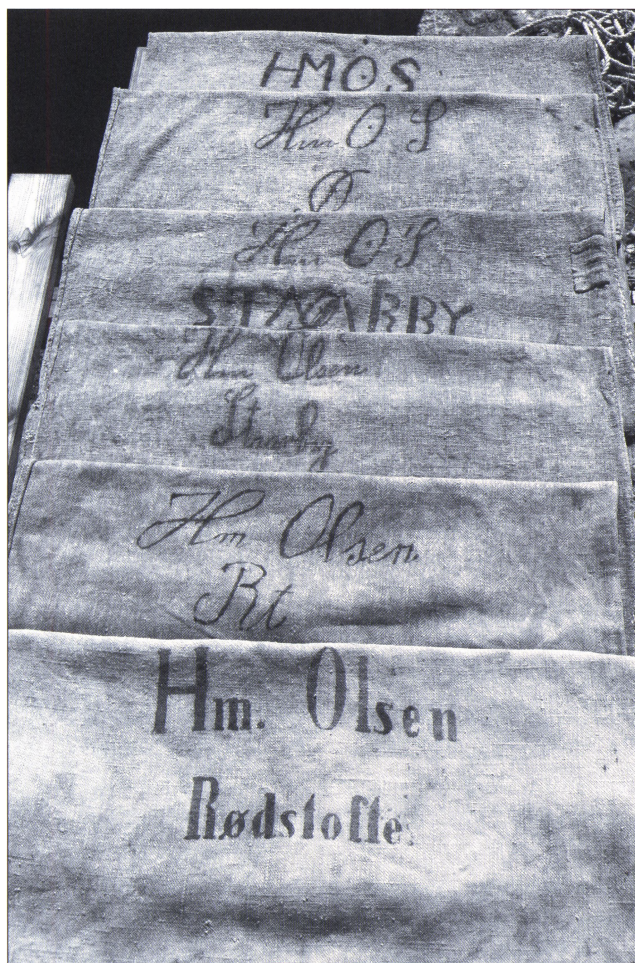 HMOS
Hm O S
Hm O S
STAARBY
Hm Olsen
Staarby
Hm Olsen
Rt
Hm. Olsen
Rødstofte.